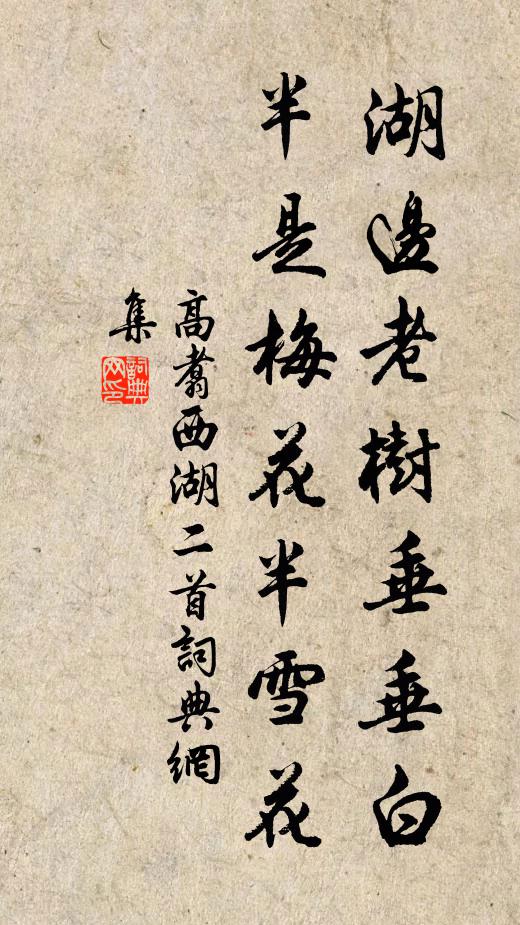 湖邊老樹垂垂白
半是梅花半雪花
高翥西湖二首詞典網
集
詞典
网印